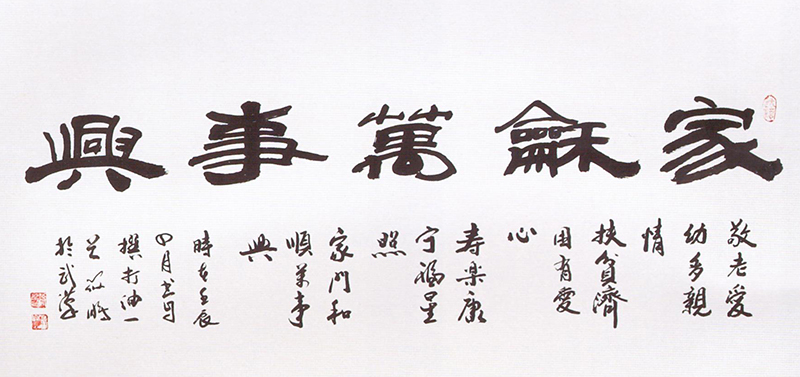 家龢萬事興
敬老愛
幼多親
情
扶貧濟
困有愛
心
壽樂康
宁福星
照
家門和
順萬事
興
時在壬辰
四月書
撰打油一
於武漢